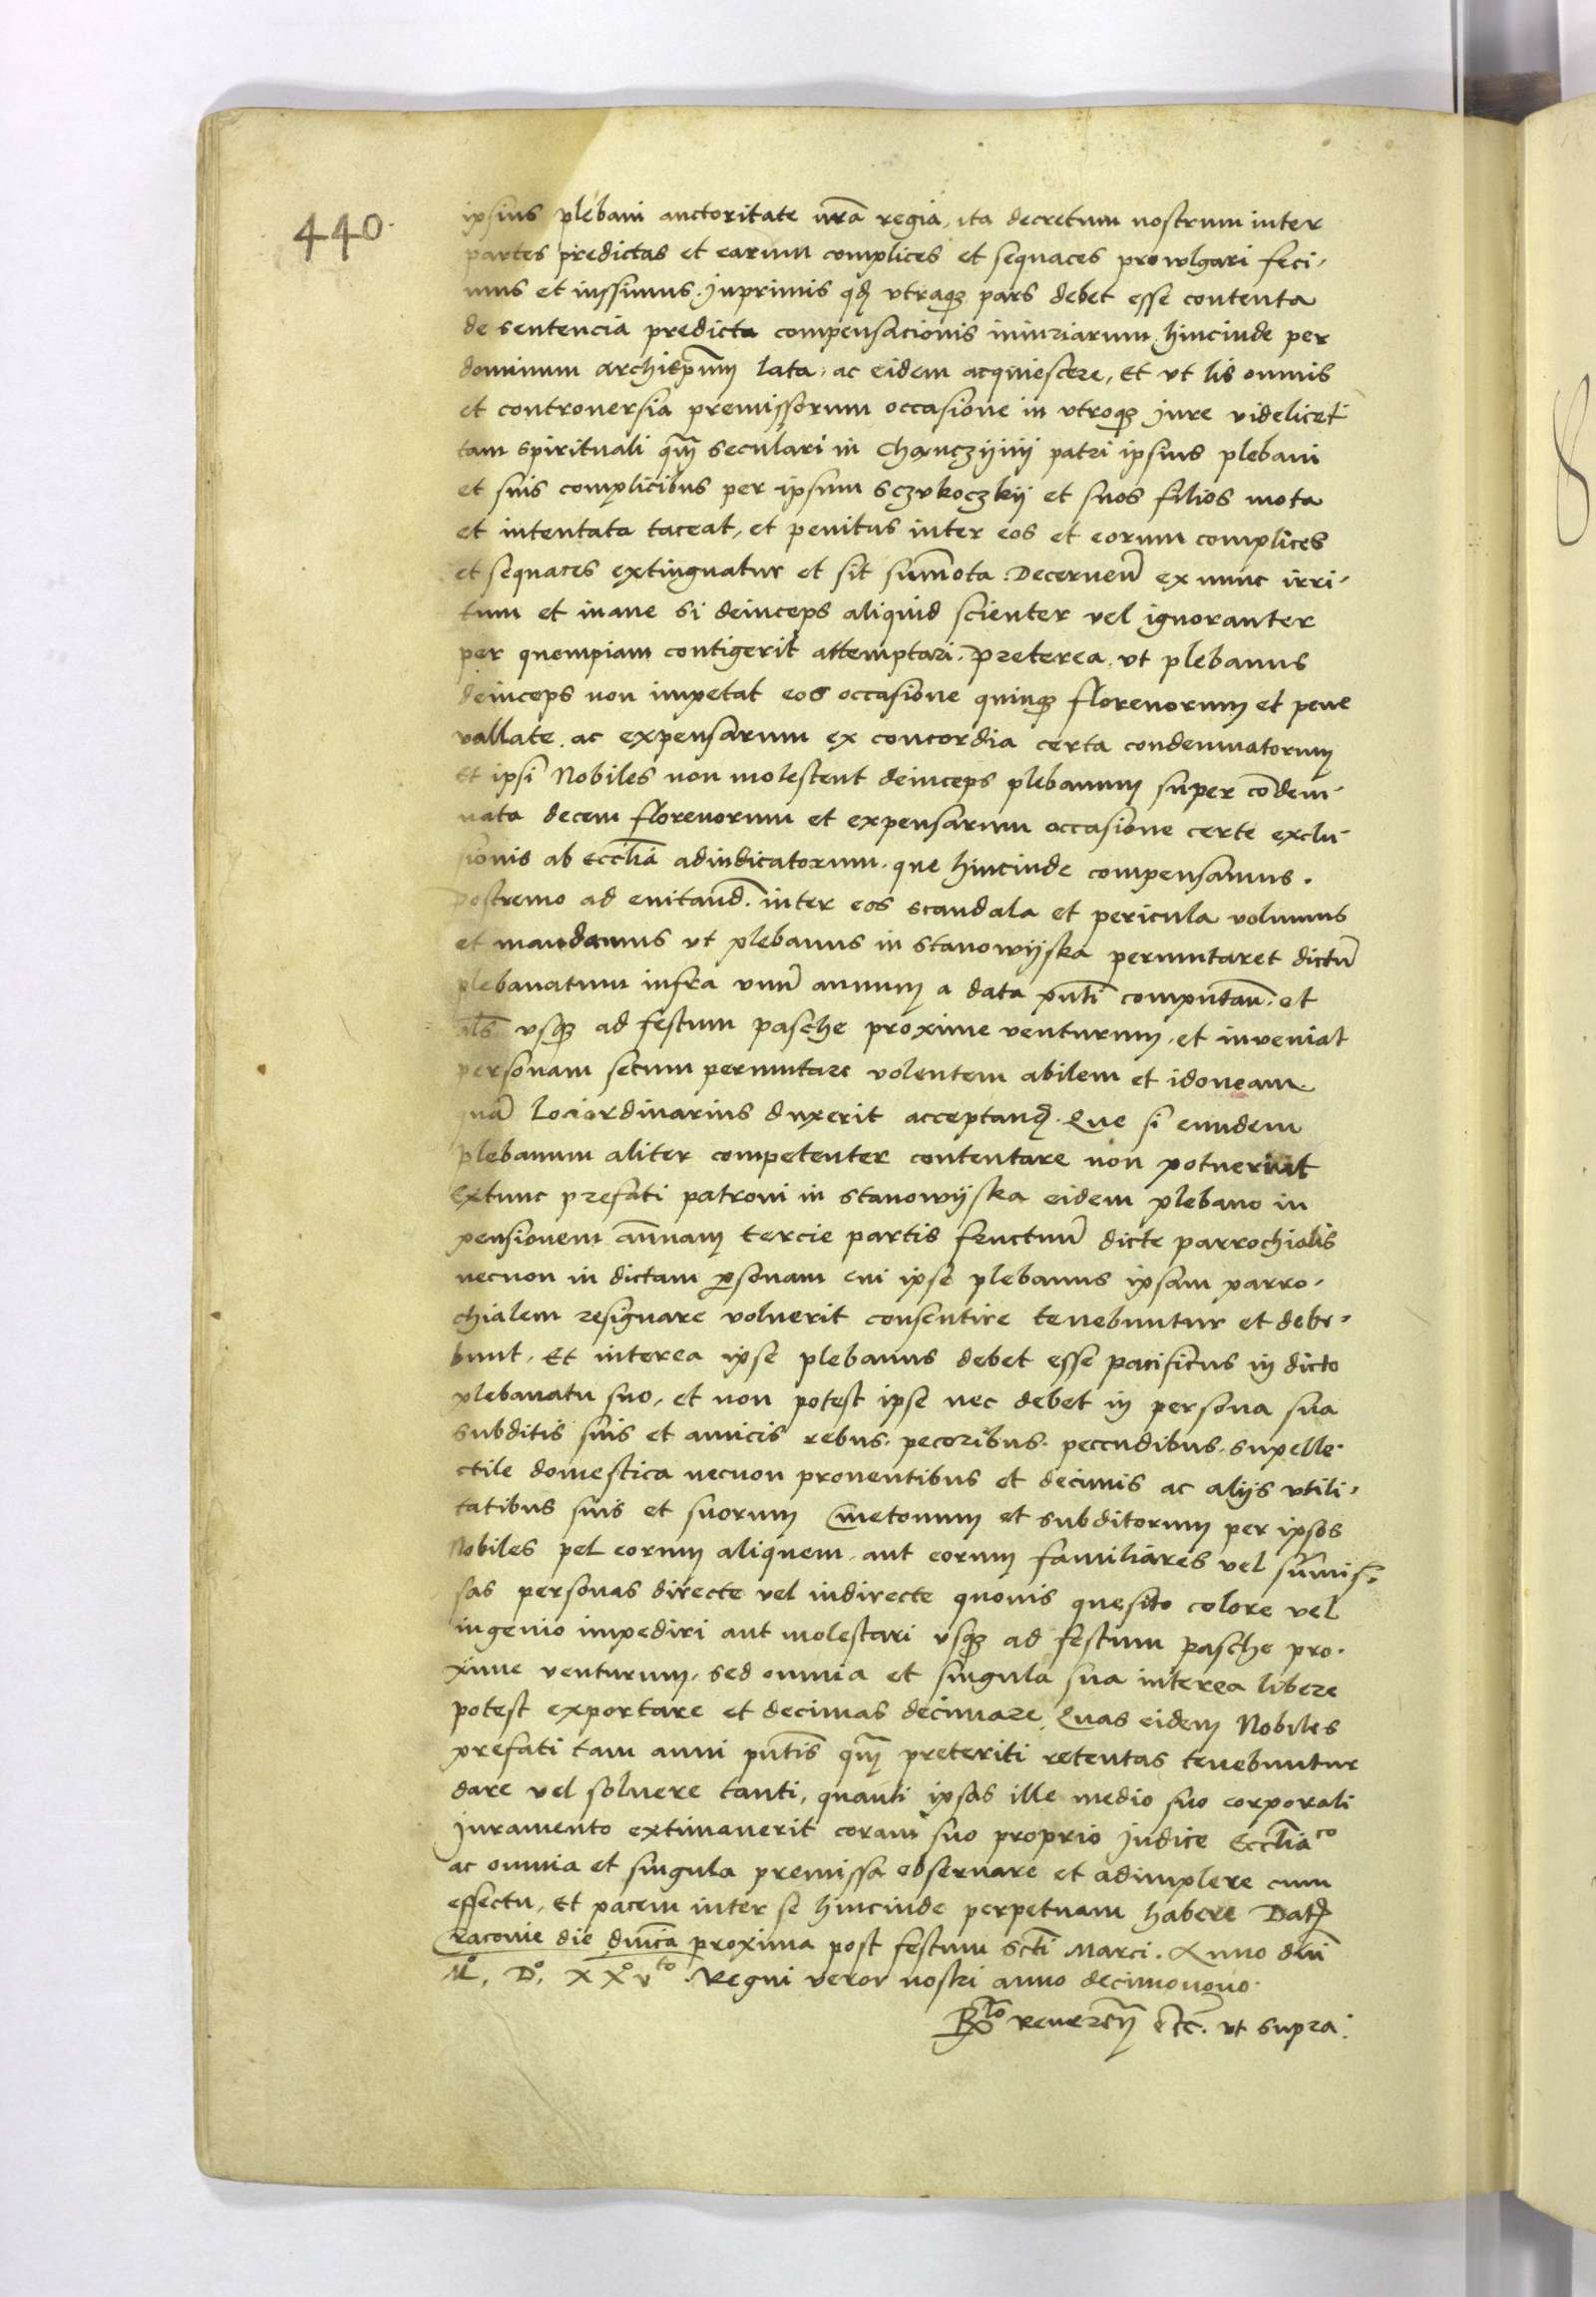 440.
ipsius plebani auctoritate nrā regia, ita decretum nostrum inter
partes predictas et earum complices et sequaces prowlgari feci,
mus et iussimus. Inprimis qđ vtraqꝫ pars debet esse contenta
de sentencia predicta compensacionis iniuriarum hincinde per
dominum archiepm̄ lata, ac eidem acquiescere, Et vt lis omnis
et controuersia premissorum occasione in vtroqꝫ jure videlicet
tam spirituali qm̄ seculari in Chanczijnij patri ipsius plebani
et suis complicibus per ipsum Sczvkoczkij et suos filios mota
et intentata taceat, et penitus inter eos et eorum complices
et sequaces extinguatur et sit sum̄ota. Decernen̄ ex nunc irri,
tum et inane si deinceps aliquid scienter vel ignoranter
per quempiam contigerit attemptari. Preterea vt plebanus
deinceps non impetat eos occasione quinqꝫ florenorum et pene
vallate, ac expensarum ex concordia certa condemnatorum
Et ipsi Nobiles non molestent deinceps plebanum super cōdem,
nata decem florenorum et expensarum occasione certe exclu,
sionis ab eccl̄ia adiudicatorum, que hincinde compensamus.
Postremo ad euitand̄. inter eos scandala et pericula volumus
et mandamus vt plebanus in Stanowijska permutaret dictū
plebanatum infra vnū annum a data pn̄ti computan̄. et
al̄s vsqꝫ ad festum pasche proxime venturum, et inveniat
personam secum permutare volentem abilem et idoneam
quā Lociordinarius duxerit acceptand̄. Que si eundem
plebanum aliter competenter contentare non potuerint
extunc prefati patroni in Stanowijska eidem plebano in
pensionem an̄uam tercie partis fructuū dicte parrochialis
necnon in dictam ꝑsonam cui ipse plebanus ipsam parro,
chialem resignare voluerit consentire tenebuntur et debe,
bunt. Et interea ipse plebanus debet esse pacificus in dicto
plebanatu suo, et non potest ipse nec debet in persona sua
subditis suis et amicis rebus. pecoribus. peccudibus. supelle,
ctile domestica necnon prouentibus et decimis ac alijs vtili,
tatibus suis et suorum Cmetonum et subditorum per ipsos
Nobiles vel eorum aliquem, aut eorum familiares vel sum̄is,
sas personas directe vel indirecte quouis quesito colore vel
ingenio impediri aut molestari vsqꝫ ad festum Pasche pro,
xime venturum, sed omnia et singula sua interea libere
potest exportare et decimas decimare. Quas eidem Nobiles
prefati tam anni pn̄tis qm̄ preteriti retentas tenebuntur
dare vel soluere tanti, quanti ipsas ille medio suo corporali
Juramento extimauerit coram suo proprio Judice Eccl̄iaco
ac omnia et singula premissa obseruare et adimplere cum
effectu, Et pacem inter se hincinde perpetuam habere Dat̄
Cracouie die dn̄ica proxima post festum scti Marci. Anno dn̄i
Mo. Do. XXovto. Regni vero nostri anno decimonono.
Rlo reueren̄ etc. vt supra.